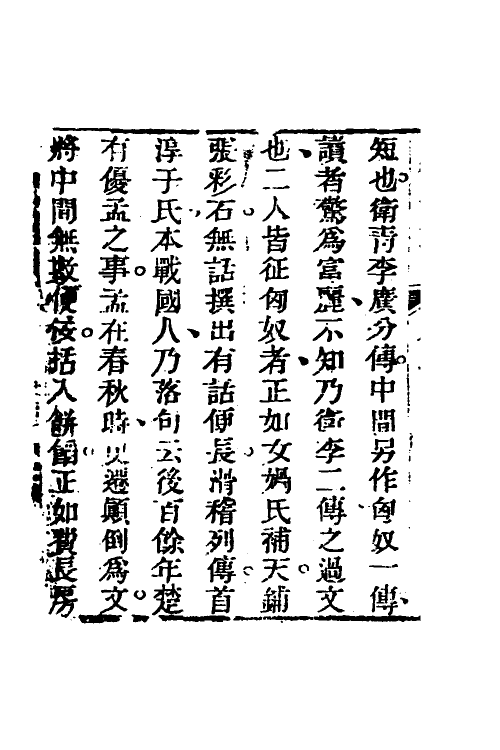 短也衛青李廣分傳中間另作匈奴一傳
讀者驚為富麗不知乃衛李二傳之過文
也二人皆征匈奴者正如女媧氏補天鋪
張彩石無話撰出有話便長滑稽列傳首
淳于氏本戰國人乃落句云後百餘年楚
有優孟之事孟在春秋時史遷顛倒為文
將中間無數便佞括入餅餡正如費長房